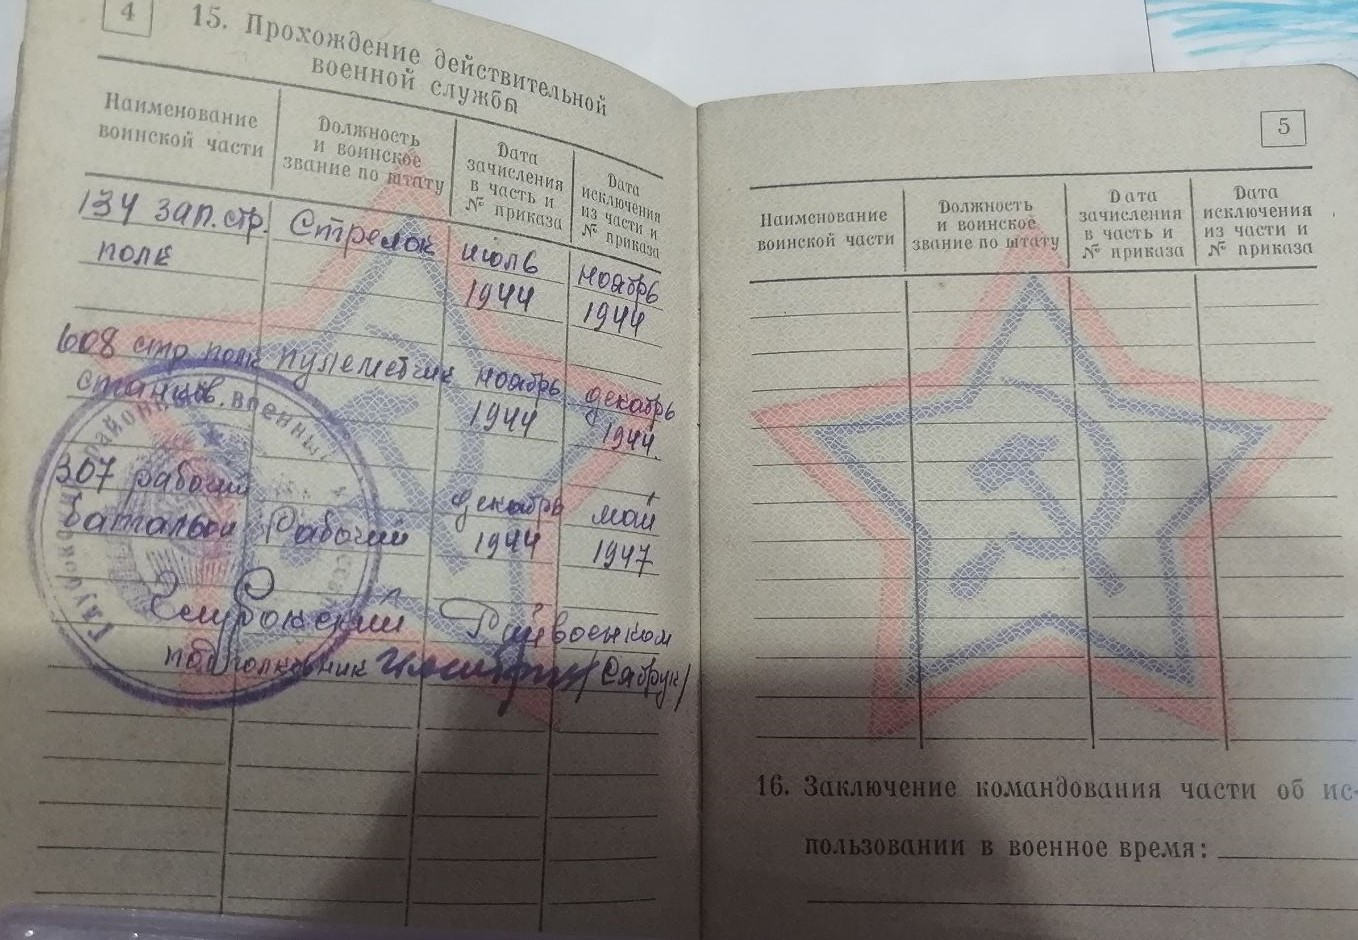 4
15. Прохождение действительной
военной службы
Наименование
воинской части
Должность
и воинское
звание по штату
Дата
зачисления
в часть и
№ приказа
Дата
исключения
из части и
№ приказа
134 зап. стр.
полк
Стрелок
июль
1944
ноябрь
1944
608 стр полк
станков.
пулеметчик
ноябрь
1944
декабрь
1944
307 рабочий
батальон
Рабочий
декабрь
1944
май
1947
Глубокский Райвоенком
подполковник /Сябрук/
районный военный
5
Наименование
воинской части
Должность
и воинское
звание по штату
Дата
зачисления
в часть и
№ приказа
Дата
исключения
из части и
№ приказа
16. Заключение командования части об ис-
пользовании в военное время: